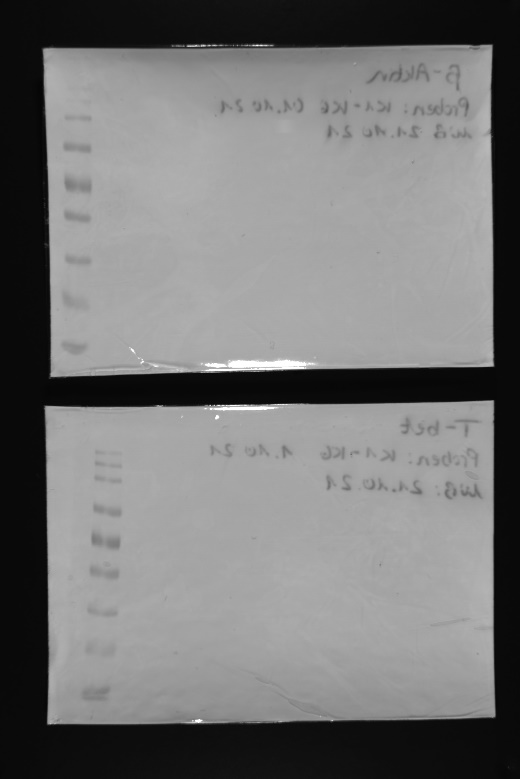 β-Aktin
Proben: K1-K6 (1.10.21
WB 21.10.21
T-bet
Proben: K1-K6 1.10.21
WB: 21.10.21